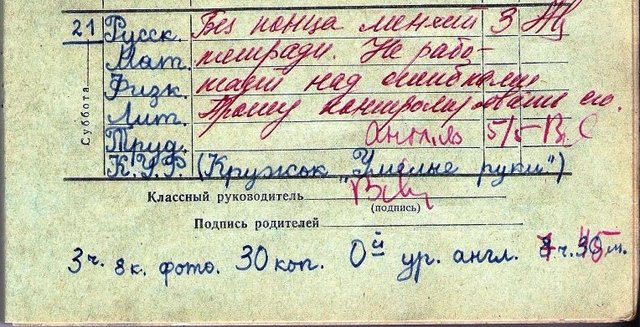 21 Русск. Без конца меняет 3
Мат. тетради. Не рабо-
Физк. тает над ошибками.
Лит. Прошу контролировать его.
Труд. англ. яз 5/5
К.У.Р. (Кружок „Умелые руки")
Суббота
Классный руководитель
(подпись)
Подпись родителей
3 ч. 8 к. фото. 30 коп. 0й ур. англ. 7 ч. 45 м.